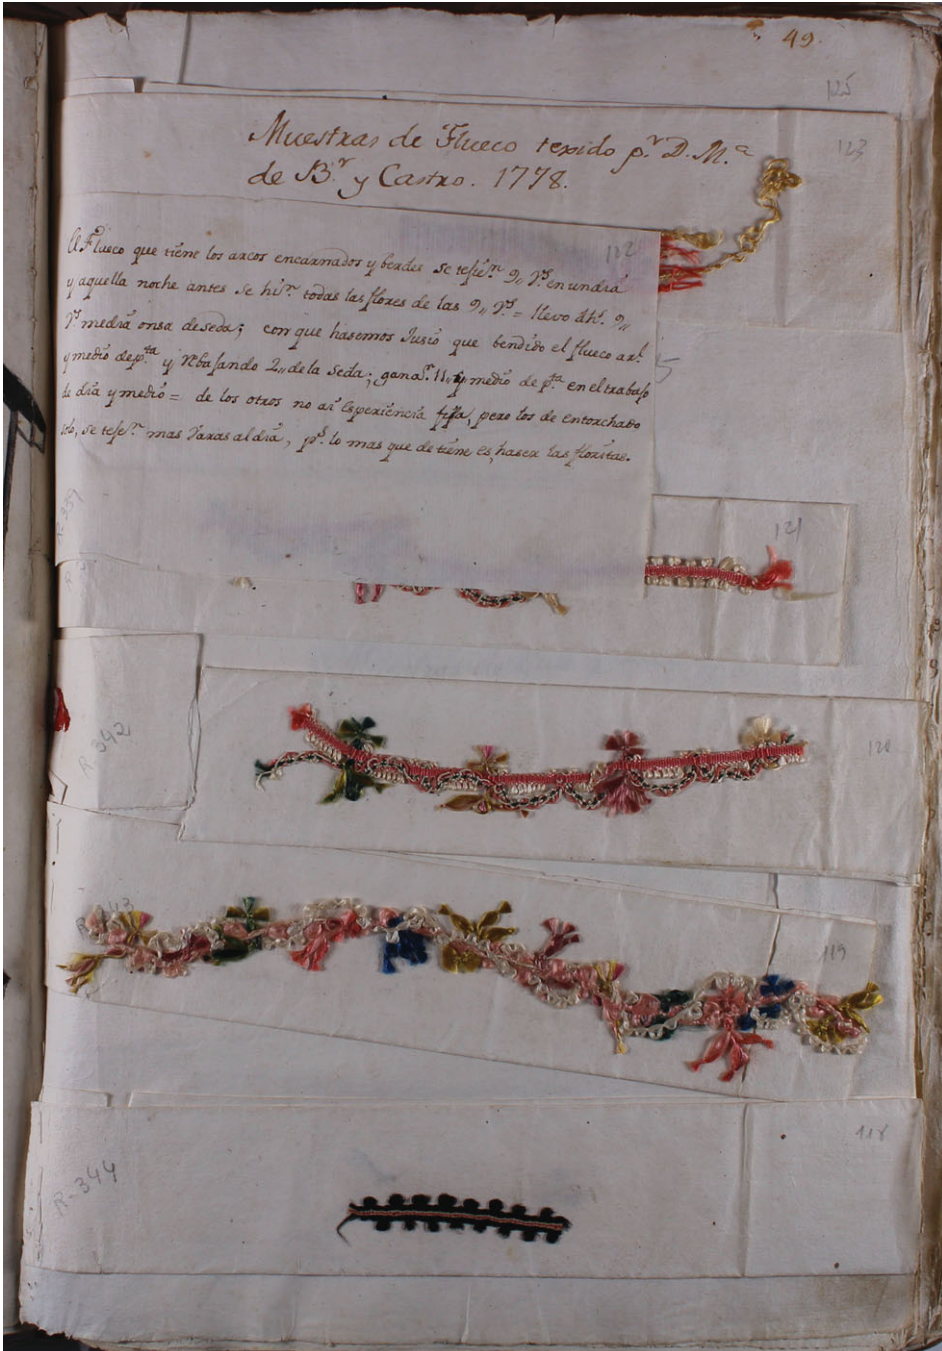 49.
125
Muestras de Flueco texido p.r D. M.a
de B.r y Castro. 1778.
123
122
El Flueco que tiene los arcos encarnados y berdes se tejie.n 9,, v.s en un dia
y aquella noche antes se hisie.n todas las flores de las 9,, v.s = llevo dho. 9,,
v.s media onsa de seda; con que hasemos Jusio que bendido el flueco a
y medio de p.ta y rebajando 2,, de la seda; gana 11,, y medio de p.ta en el trabajo
de dia y medio = de los otros no ai esperiencia fija, pero los de entorchado
solo, se teje.n mas varas al dia, p.s lo mas que detiene es, haser las floritas.
5
121
R. 342
120
119
R. 344
118